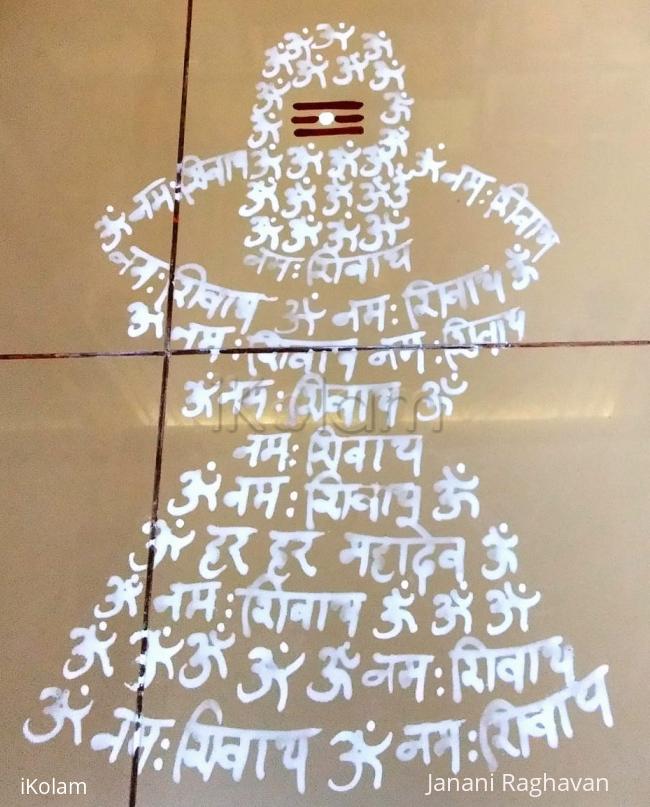 ॐ ॐ ॐ ॐ
ॐ ॐ ॐ
ॐ ॐ
ॐ ॐ
ॐ नमः शिवाय ॐ ॐ ॐ ॐ ॐ नमः शिवाय
ॐ ॐ ॐ ॐ
ॐ ॐ ॐ ॐ
नमः शिवाय
नमः शिवाय ॐ नमः शिवाय ॐ
ॐ नमः शिवाय नमः शिवाय
ॐ नमः शिवाय ॐ
iKolam
नमः शिवाय
ॐ नमः शिवाय ॐ
ॐ हर हर महादेव ॐ
ॐ नमः शिवाय ॐ ॐ ॐ
ॐ ॐ ॐ ॐ ॐ नमः शिवाय
ॐ नमः शिवाय ॐ नमः शिवाय
iKolam
Janani Raghavan